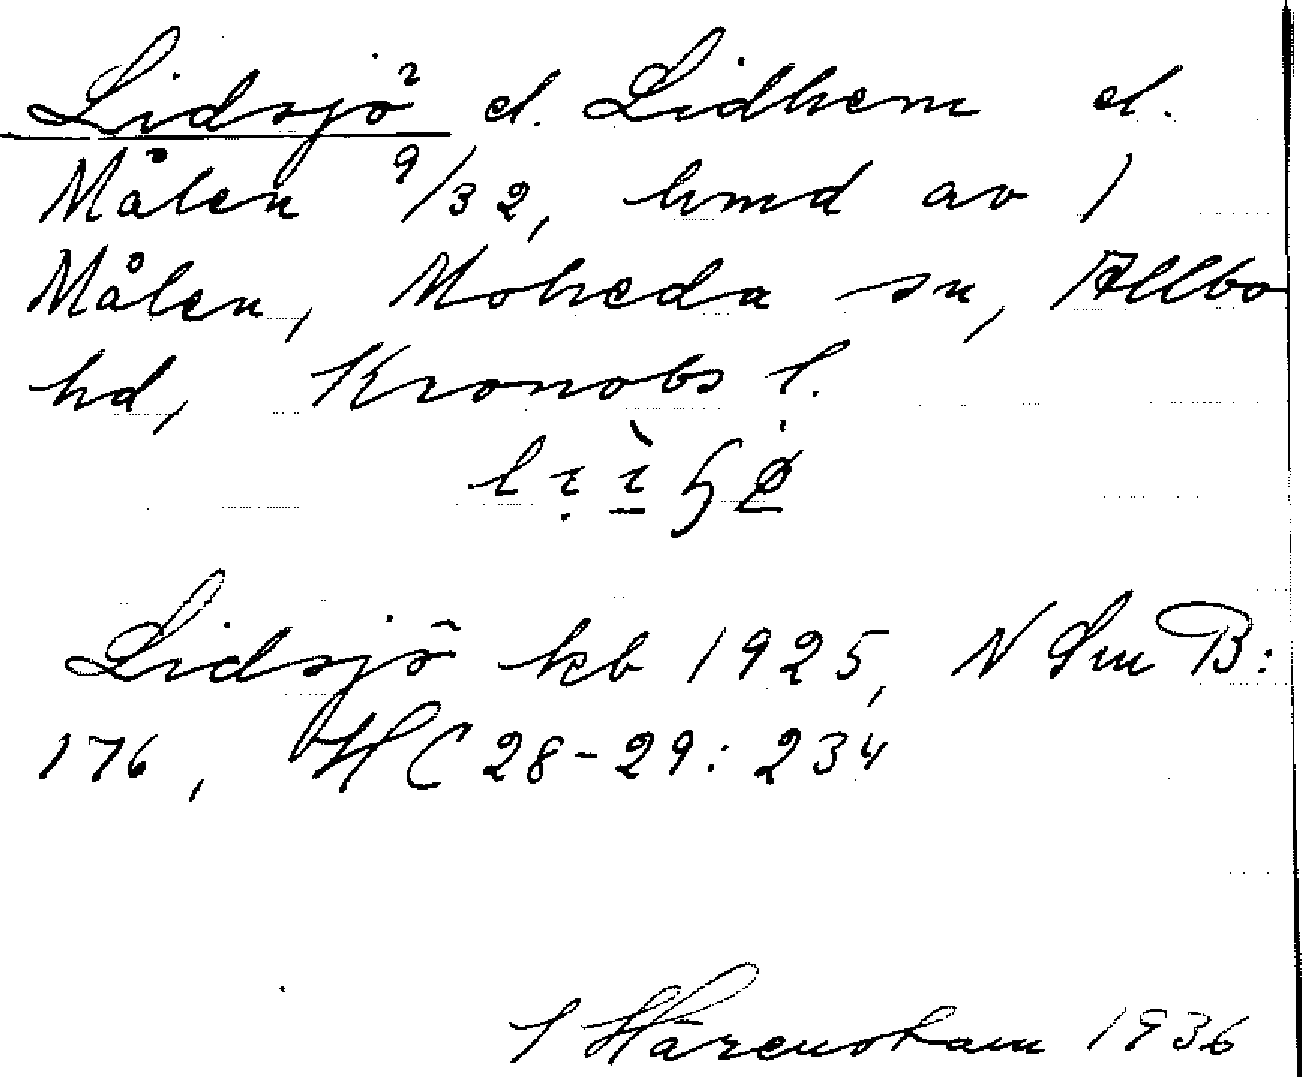 Lidsjö el. Lidhem el.
Målen 9/32, hmd av 1
Målen, Moheda sn, Allbo
hd, Kronobs l.
Lidsjö kb 1925, N Sm B:
176, HC 28-29: 234
Härenstam 1936